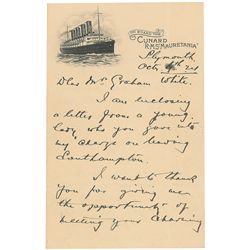 ON BOARD THE
CUNARD
R.M.S. "MAURETANIA"
Plymouth
Oct 24
Dear Mr Graham White.
I am enclosing
a letter from a young
lady who you gave into
my charge on leaving
Southampton.
I want to thank
you for giving me
the opportunity of
meeting your charming